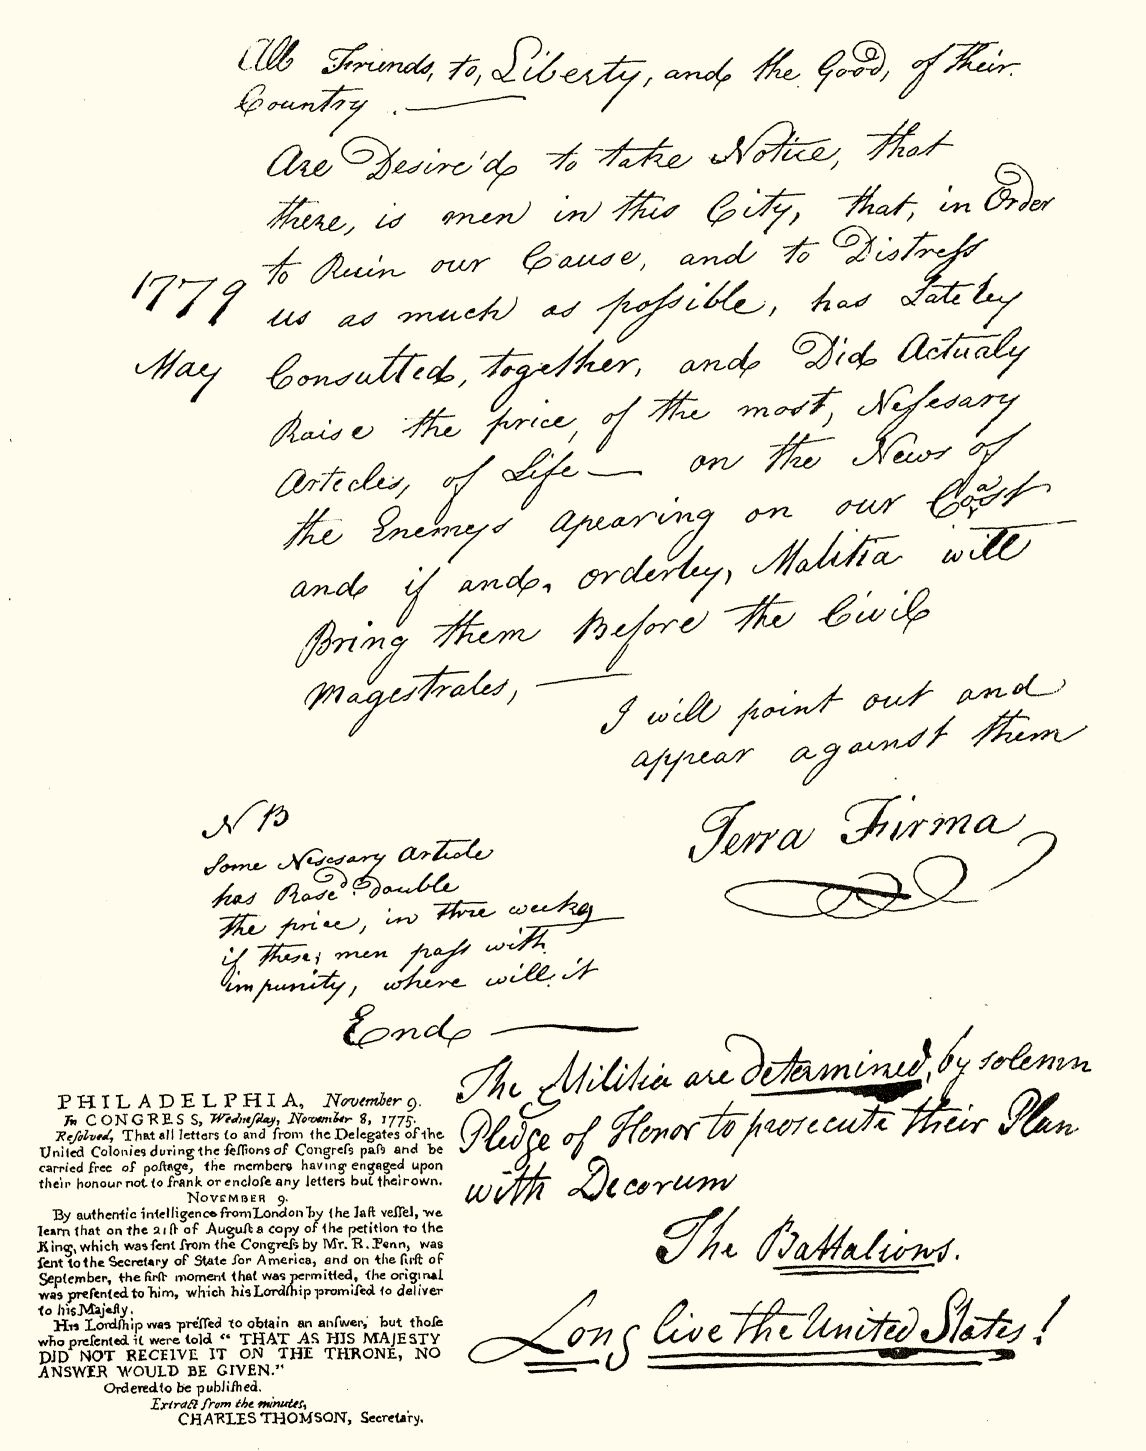 All Friends, to, Liberty, and the Good, of their.
Country . —
Are Desire'd to take Notice, that
there, is men in this City, that, in Order
to Ruin our Cause, and to Distreſs
us as much as poſsible, has Lateley
Consulted, together, and Did Actualy
Raise the price, of the most, Neſesary
Artecles, of Life — on the News of
the Enemeys apearing on our Coast
and if and, orderley, Malitia will
Bring them Before the Civil
Magestrales, —
1779
May
I will point out and
appear against them
Terra Firma
N B
Some Nescsary Artecle
has Rased Double
the price, in three weeks
if these, men paſs with
impunity, where will it
End —
The Militia are determined, by solemn
Pledge of Honor to prosecute their Plan
with Decorum
The Battalions.
Long live the United States!
PHILADELPHIA, November 9.
In CONGRESS, Wedneſday, November 8, 1775.
Reſolved, That all letters to and from the Delegates of the
United Colonies during the ſeſſions of Congreſs paſs and be
carried free of poſtage, the members having engaged upon
their honour not to frank or encloſe any letters but their own.
NOVEMBER 9.
By authentic intelligence from London by the laſt veſſel, we
learn that on the 21ſt of Auguſt a copy of the petition to the
King, which was ſent from the Congreſs by Mr. R. Penn, was
ſent to the Secretary of State for America, and on the firſt of
September, the firſt moment that was permitted, the original
was preſented to him, which his Lordſhip promiſed to deliver
to his Majeſty.
His Lordſhip was preſſed to obtain an anſwer, but thoſe
who preſented it were told " THAT AS HIS MAJESTY
DID NOT RECEIVE IT ON THE THRONE, NO
ANSWER WOULD BE GIVEN."
Ordered to be publiſhed.
Extract from the minutes,
CHARLES THOMSON, Secretary.